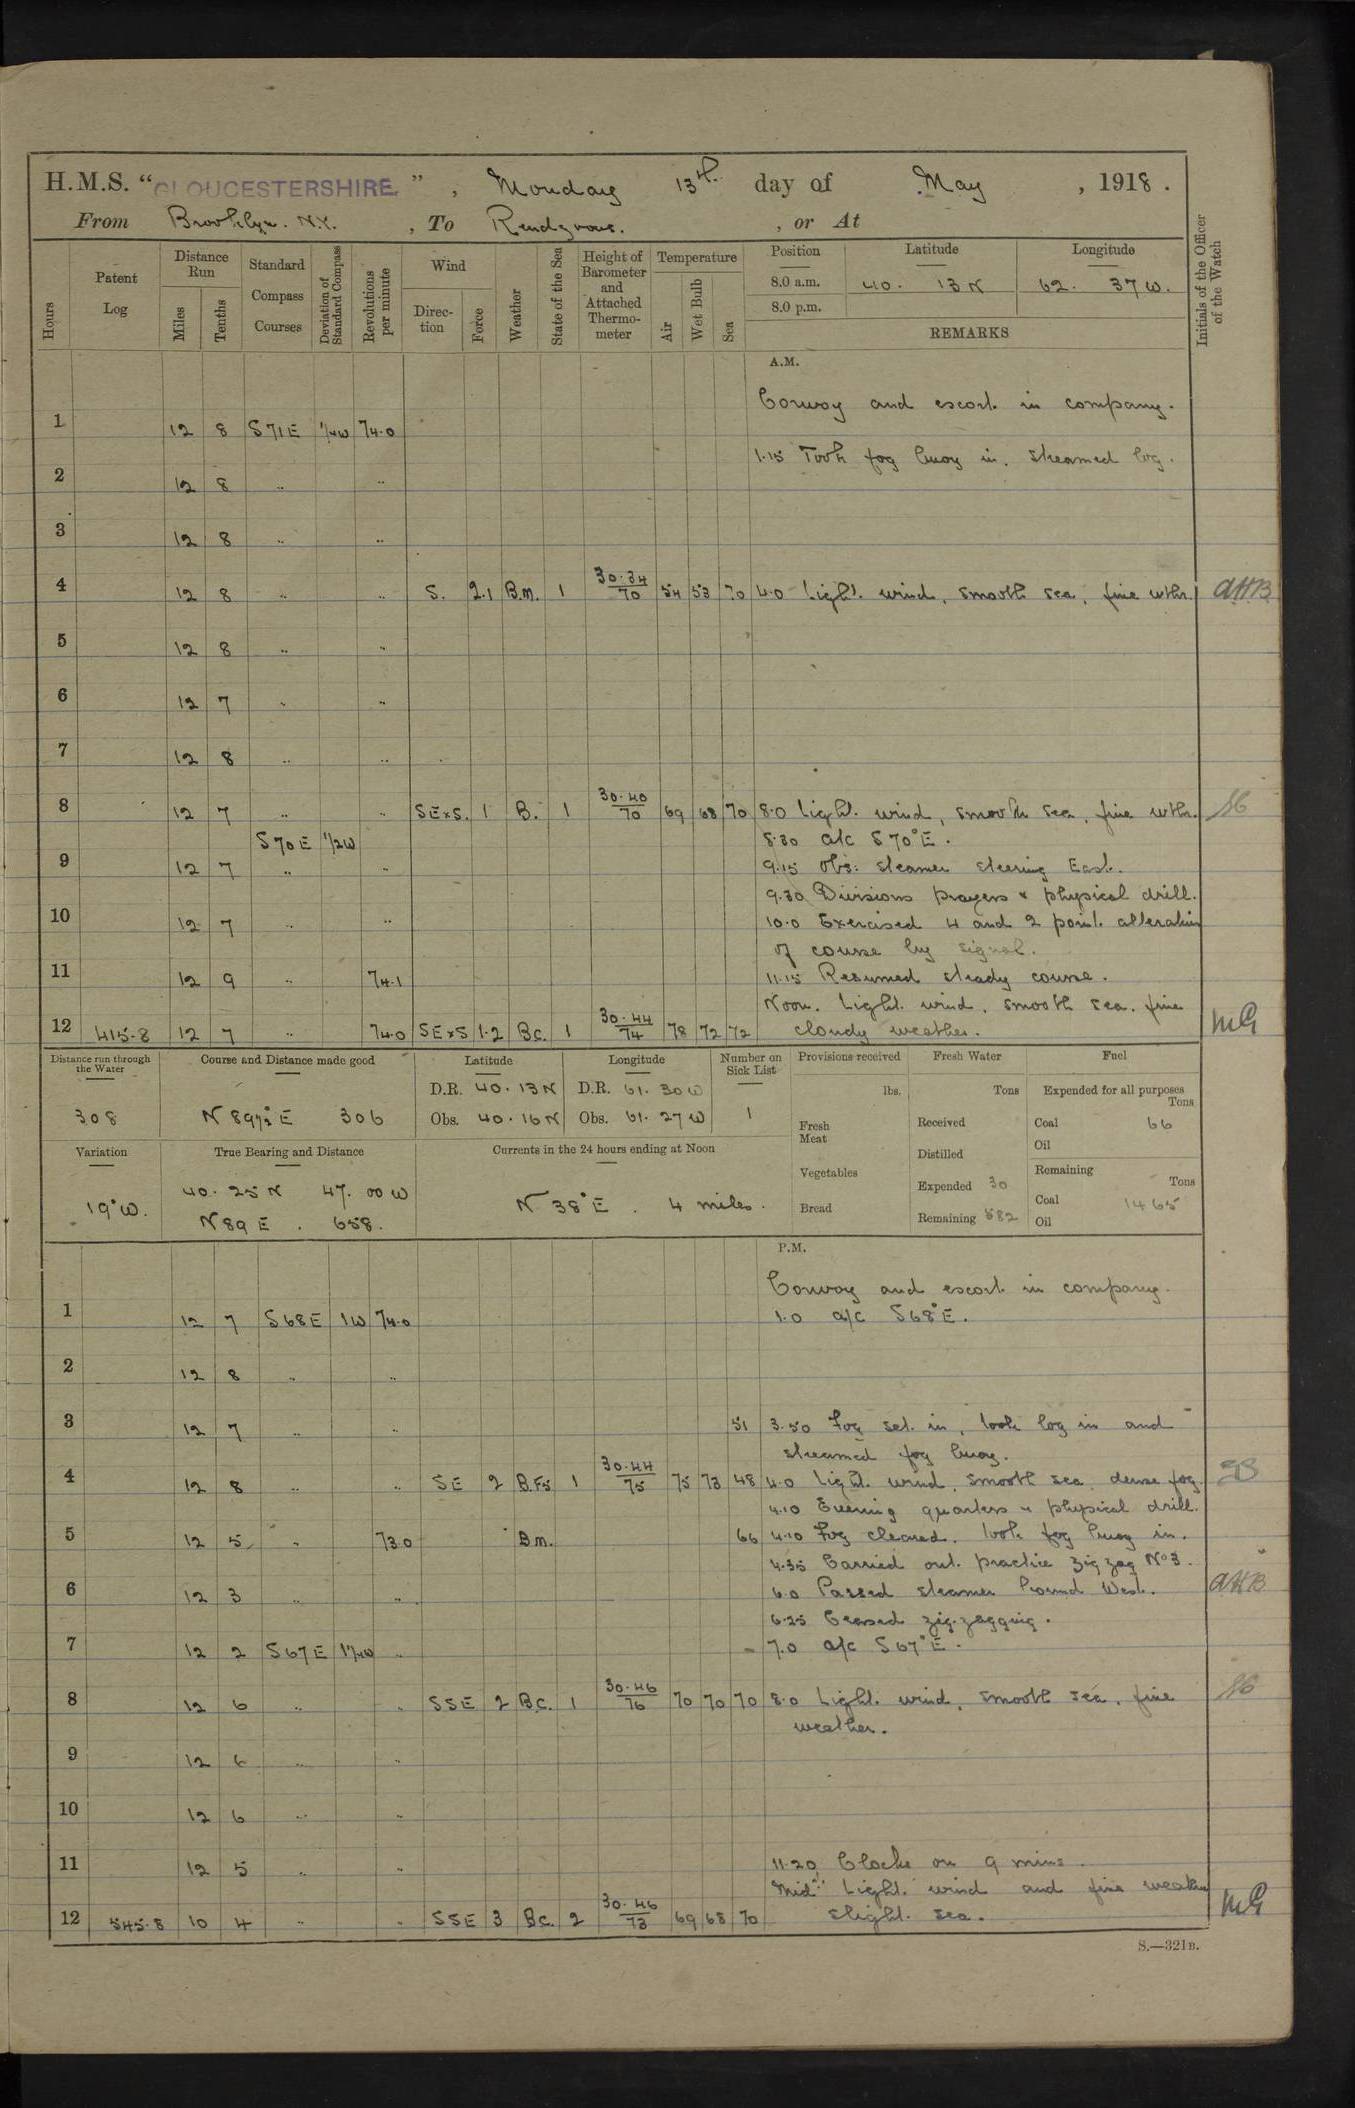 H.M.S. "GLOUCESTERSHIRE", Monday 13th day of May, 1918.
From Brooklyn. N.Y., To Rendzvous., or At
Hours
Patent Log
Distance Run
Miles
Tenths
Standard Compass Courses
Deviation of Standard Compass
Revolutions per minute
Wind
Direction
Force
Weather
State of the Sea
Height of Barometer and Attached Thermometer
Temperature
Air
Wet Bulb
Sea
Position Latitude Longitude
8.0 a.m. 40. 13 N 62. 37 W.
8.0 p.m.
REMARKS
Initials of the Officer of the Watch
A.M.
Convoy and escort in company.
1 12 8 S71E 1/4W 74.0
1.15 Took fog buoy in. Streamed log.
2 12 8 .. ..
3 12 8 .. ..
4 12 8 .. .. S. 2.1 B.m. 1 30.34/70 54 53 70 4.0 Light wind, smooth sea, fine wthr. AHB
5 12 8 .. ..
6 12 7 .. ..
7 12 8 .. ..
8 12 7 .. .. SExS. 1 B. 1 30.40/70 69 68 70 8.0 Light wind, smooth sea, fine wthr.
S70E 1/2W 8.30 a/c S70°E.
9 12 7 .. .. 9.15 Obs: steamer steering East.
9.30 Divisions prayers & physical drill.
10 12 7 .. .. 10.0 Exercised 4 and 2 point alteration
of course by signal.
11 12 9 .. 74.1 11.15 Resumed steady course.
Noon. Light wind, smooth sea, fine
12 415.8 12 7 .. 74.0 SExS 1.2 Bc. 1 30.44/74 78 72 72 cloudy weather. MG
Distance run through the Water
308
Course and Distance made good
N 89½°E 306
Latitude
D.R. 40. 13 N
Obs. 40. 16 N
Longitude
D.R. 61. 30 W
Obs. 61. 27 W
Number on Sick List
1
Provisions received
lbs.
Fresh Meat
Vegetables
Bread
Fresh Water
Tons
Received
Distilled
Expended 30
Remaining 582
Fuel
Expended for all purposes
Tons
Coal 66
Oil
Remaining
Tons
Coal 1465
Oil
Variation
19°W.
True Bearing and Distance
40. 25 N 47. 00 W
N 89 E. 658.
Currents in the 24 hours ending at Noon
N 38°E. 4 miles.
P.M.
Convoy and escort in company.
1 12 7 S68E 1W 74.0 1.0 a/c S68°E.
2 12 8 .. ..
3 12 7 .. .. 51 3.50 Fog set in, took log in and
streamed fog buoy.
4 12 8 .. .. SE 2 B.Fs 1 30.44/75 75 73 48 4.0 Light wind, smooth sea, dense fog.
4.10 Evening quarters & physical drill.
5 12 5 .. 73.0 Bm. 66 4.10 Fog cleared, took fog buoy in.
4.35 Carried out practice zig zag No 3.
6 12 3 .. .. 6.0 Passed steamer bound West. AHB
6.25 Ceased zig-zagging.
7 12 2 S67E 1¼W .. 7.0 a/c S67°E.
8 12 6 .. .. SSE 2 B.C. 1 30.46/76 70 70 70 8.0 Light wind, smooth sea, fine
weather.
9 12 6 .. ..
10 12 6 .. ..
11 12 5 .. .. 11.20 Clocks on 9 mins.
Midt: Light wind and fine weather
12 545.8 10 4 .. .. SSE 3 Bc. 2 30.46/73 69 68 70 slight sea. MG
S.—321B.